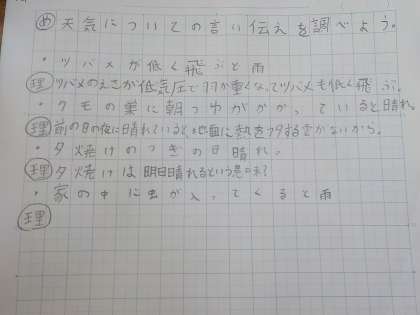 め 天気についての言い伝えを調べよう。
・ツバメが低く飛ぶと雨
理 ツバメのえさが低気圧で羽が重くなってツバメも低く飛ぶ。
・クモの巣に朝つゆがかかっていると晴れ。
理 前の日の夜に晴れていると地面に熱を
・夕焼けのつぎの日晴れ。
理 夕焼けは明日晴れるという意味
・家の中に虫が入ってくると雨
理